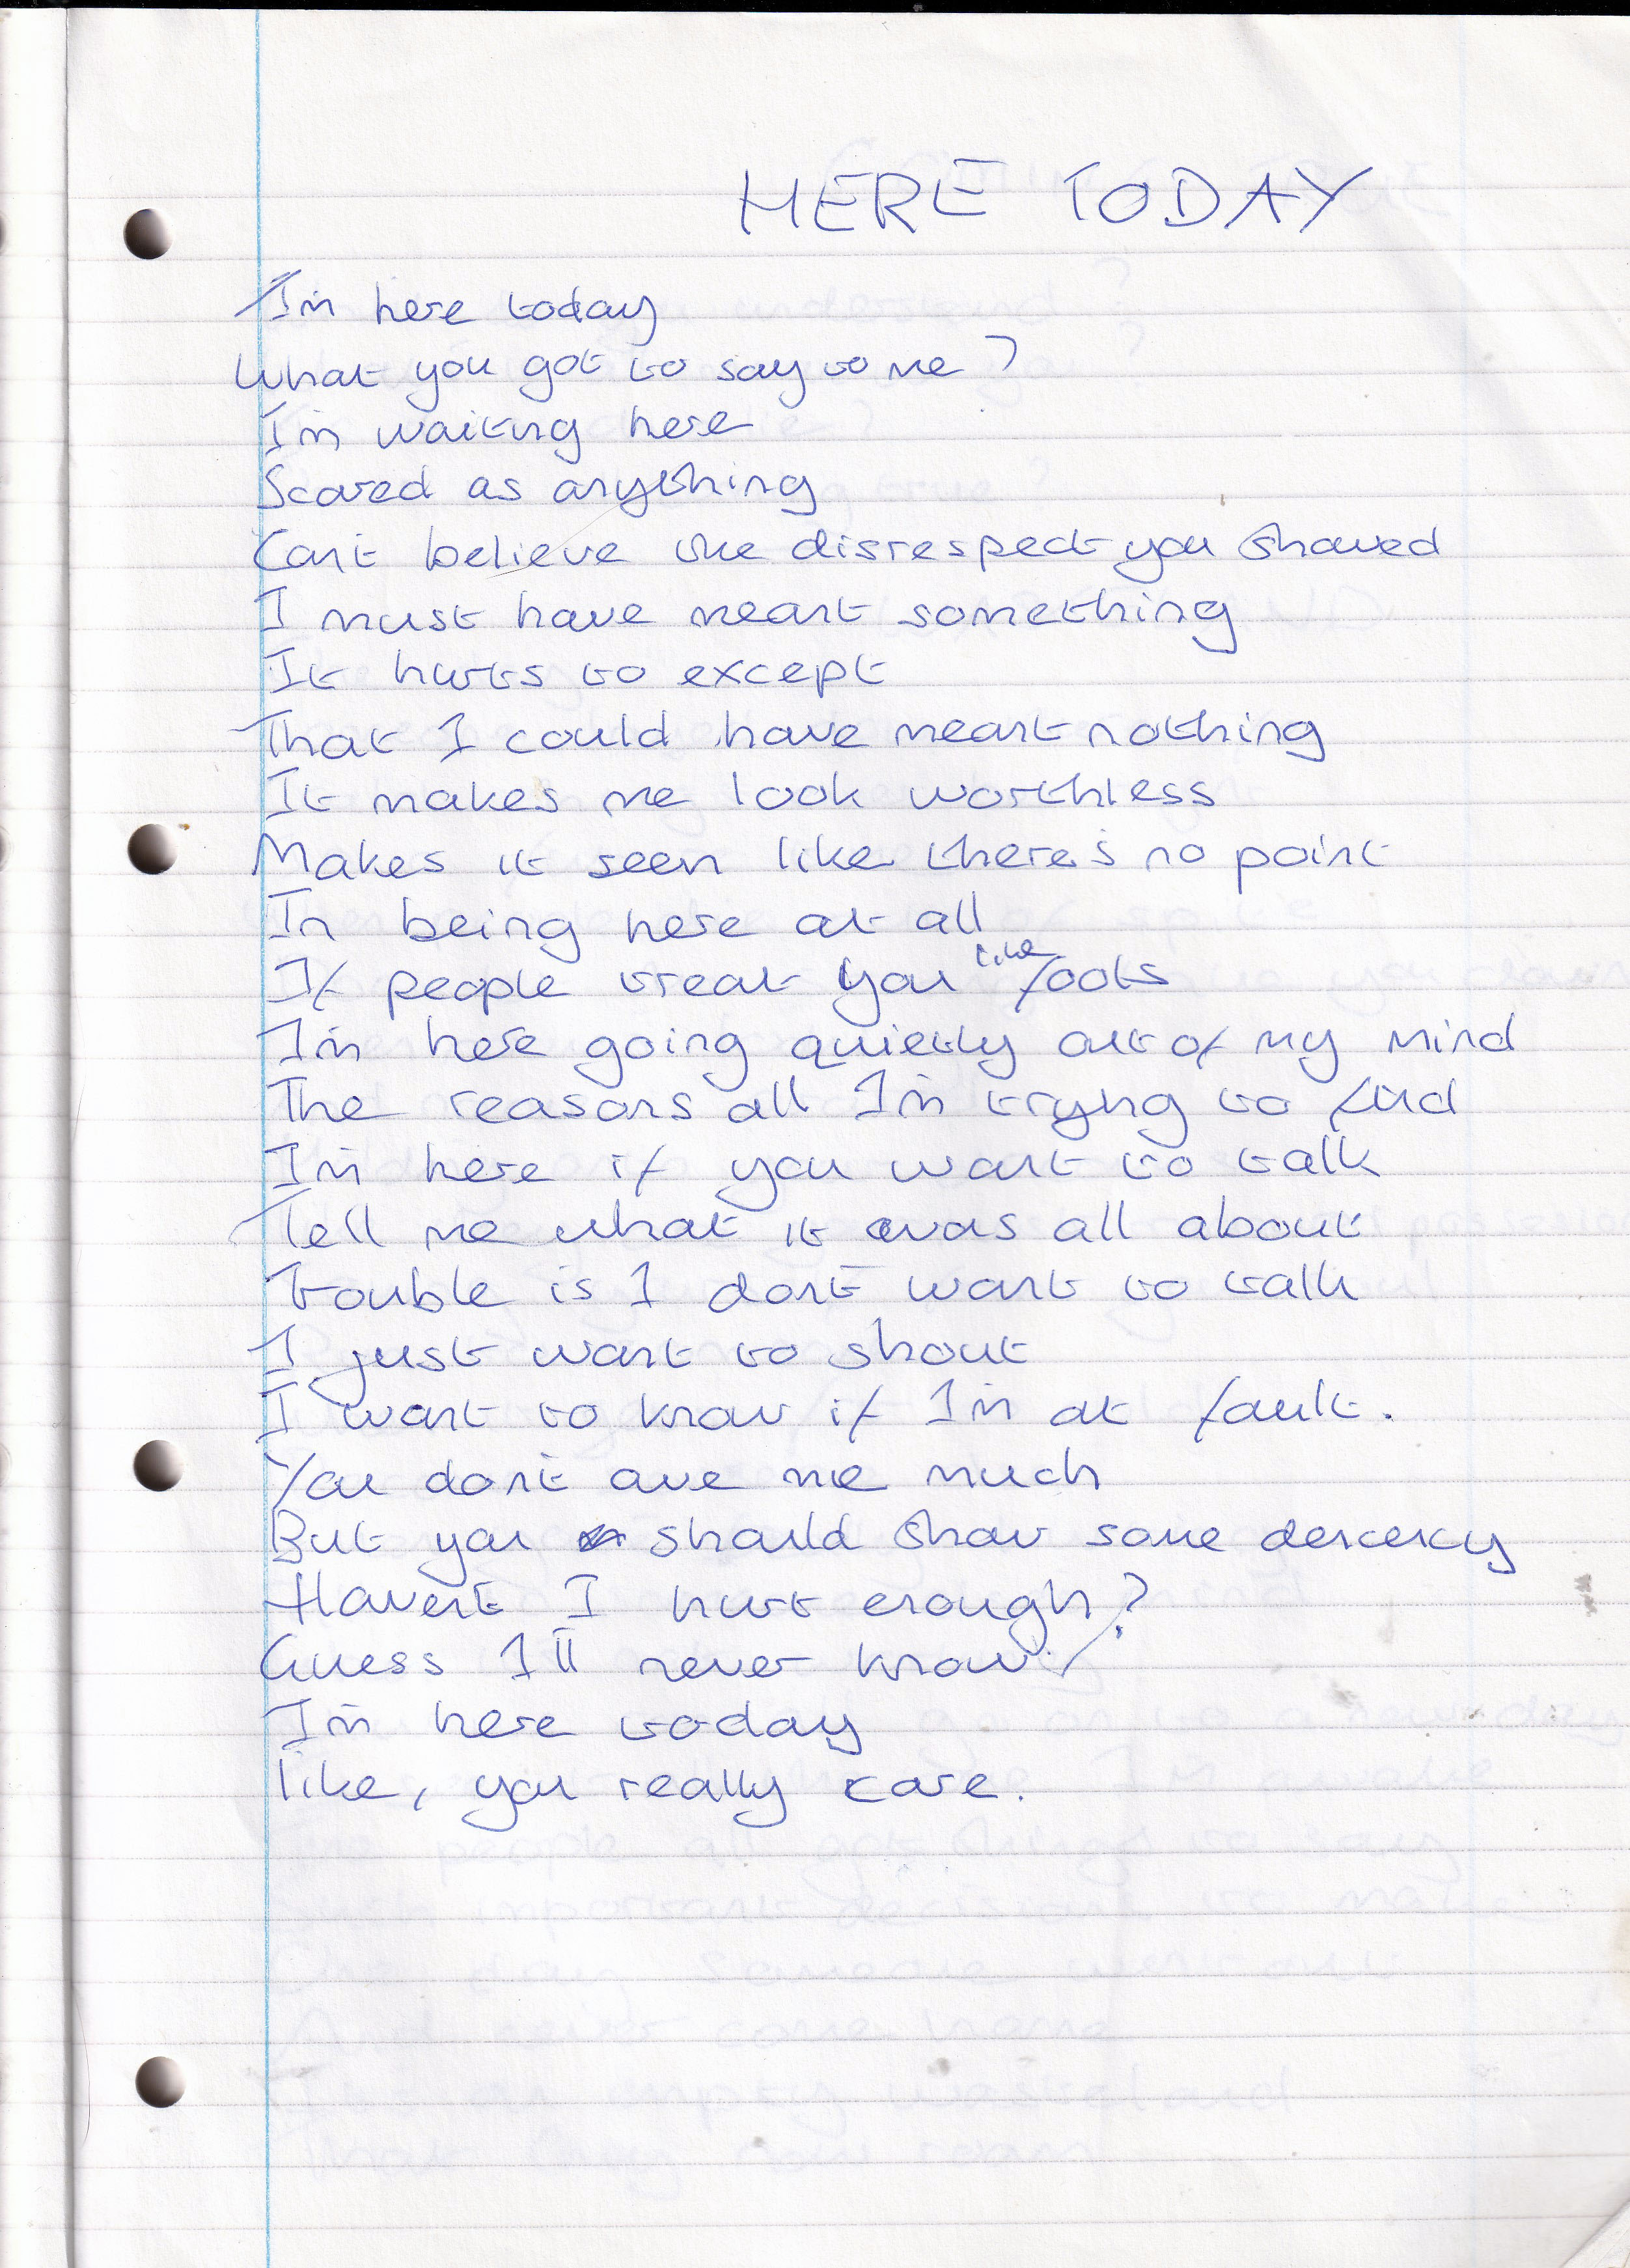 HERE TODAY
I'm here today
What you got to say to me?
I'm waiting here
Scared as anything
Can't believe the disrespect you showed
I must have meant something
It hurts to except
That I could have meant nothing
It makes me look worthless
Makes it seem like there's no point
In being here at all
If people treat you like fools
I'm here going quietly out of my mind
The reasons all I'm trying to find
I'm here if you want to talk
Tell me what it was all about
Trouble is I don't want to talk
I just want to shout
I want to know if I'm at fault.
You don't owe me much
But you should show some dencency
Haven't I hurt enough?
Guess I'll never know
I'm here today
like, you really care.